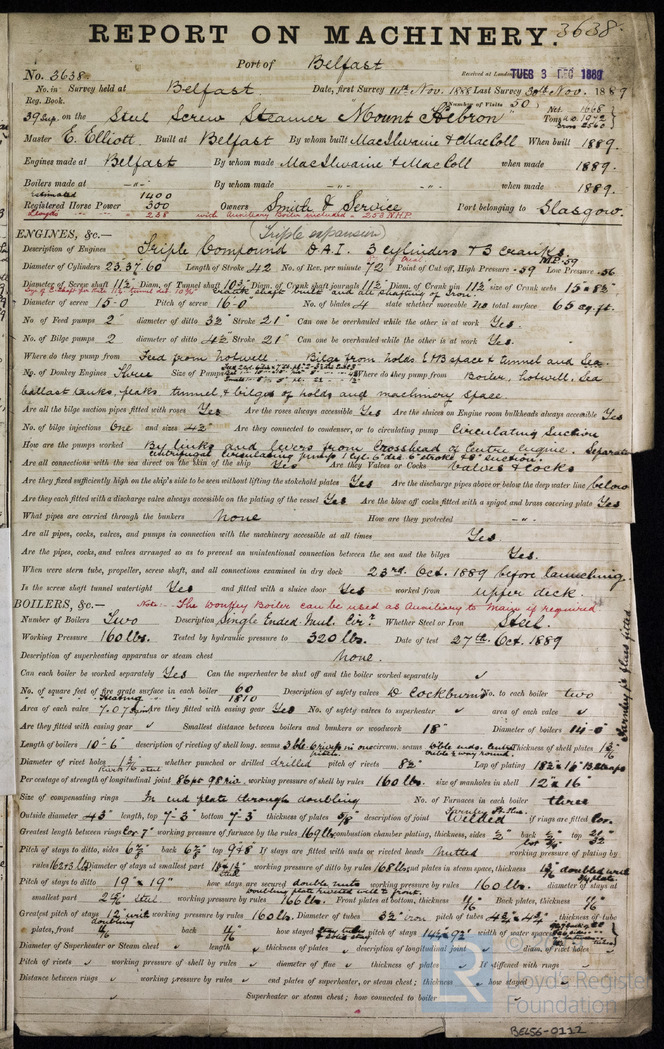 3638.
REPORT ON MACHINERY.
Port of Belfast
No. 3638. Received at London TUES 3 DEC 1889
No. in Survey held at Belfast Date, first Survey 14th Nov. 1888 Last Survey 30th Nov. 1889
Reg. Book. Number of Visits 50
39 Sup. on the Steel Screw Steamer Mount Hebron Tons
Master E. Elliott. Built at Belfast By whom built MacIlwaine & MacColl When built 1889.
Engines made at Belfast By whom made MacIlwaine & MacColl when made 1889.
Boilers made at —"— By whom made —"— when made 1889.
estimated 1400
Registered Horse Power 300 Owners Smith & Service Port belonging to Glasgow.
Lloyds 238 with Auxiliary Boiler included = 253 NHP
(Triple expansion)
ENGINES, &c.—
Description of Engines Triple Compound D.A.I. 3 cylinders & 3 cranks
Diameter of Cylinders 23.37.60 Length of Stroke 42 No. of Rev. per minute 72 Point of Cut off, High Pressure .59 Low Pressure .56
Diameter of Screw shaft 11½ Diam. of Tunnel shaft 10¾ Diam. of Crank shaft journals 11½ Diam. of Crank pin 11½ size of Crank webs 15 × 8½
crank shaft built and all shafting of Iron.
Diameter of screw 15-0 Pitch of screw 16-0 No. of blades 4 state whether moveable no total surface 65 sq. ft.
No. of Feed pumps 2 diameter of ditto 3½ Stroke 21" Can one be overhauled while the other is at work Yes.
No. of Bilge pumps 2 diameter of ditto 4½ Stroke 21" Can one be overhauled while the other is at work Yes.
Where do they pump from Feed from hotwell. Bilge from holds E & B space & tunnel and Sea.
No. of Donkey Engines Three Size of Pumps Where do they pump from Boiler, hotwell, Sea
ballast tanks, peaks tunnel, & bilges of holds and machinery space.
Are all the bilge suction pipes fitted with roses Yes Are the roses always accessible Yes Are the sluices on Engine room bulkheads always accessible Yes
No. of bilge injections One and sizes 4½ Are they connected to condenser, or to circulating pump Circulating Suction
How are the pumps worked By links and levers from Crosshead of Centre engine. Separate
centrifugal circulating pump 1 cyl. 6" dia 6" stroke & 8" suction.
Are all connections with the sea direct on the skin of the ship Yes Are they Valves or Cocks Valves & Cocks
Are they fixed sufficiently high on the ship's side to be seen without lifting the stokehold plates Yes Are the discharge pipes above or below the deep water line below
Are they each fitted with a discharge valve always accessible on the plating of the vessel Yes Are the blow off cocks fitted with a spigot and brass covering plate Yes
What pipes are carried through the bunkers none How are they protected —"—
Are all pipes, cocks, valves, and pumps in connection with the machinery accessible at all times Yes
Are the pipes, cocks, and valves arranged so as to prevent an unintentional connection between the sea and the bilges Yes.
When were stern tube, propeller, screw shaft, and all connections examined in dry dock 23rd. Oct. 1889 before launching.
Is the screw shaft tunnel watertight Yes and fitted with a sluice door Yes worked from upper deck.
BOILERS, &c.— Note:- The Donkey Boiler can be used as Auxiliary to Main if required
Number of Boilers Two Description Single Ended Mul. Cir. Whether Steel or Iron Steel.
Working Pressure 160 lbs. Tested by hydraulic pressure to 320 lbs. Date of test 27th. Oct. 1889
Description of superheating apparatus or steam chest None.
Can each boiler be worked separately Yes Can the superheater be shut off and the boiler worked separately ✓
No. of square feet of fire grate surface in each boiler 60 Description of safety valves D Cockburns No. to each boiler two
Heating 1810
Area of each valve 7.07 Are they fitted with easing gear Yes No. of safety valves to superheater ✓ area of each valve ✓
Are they fitted with easing gear ✓ Smallest distance between boilers and bunkers or woodwork 18" Diameter of boilers 14-0
Length of boilers 10-6" description of riveting of shell long. seams circum. seams thickness of shell plates
Diameter of rivet holes whether punched or drilled drilled pitch of rivets 8½ Lap of plating
Per centage of strength of longitudinal joint working pressure of shell by rules 160 lbs. size of manholes in shell 12 × 16
Size of compensating rings In end plate through doubling No. of Furnaces in each boiler three
Outside diameter 43" length, top 7'-3" bottom 7'-3" thickness of plates description of joint Welded if rings are fitted Cor.
Farnley Pt. flues.
Farnley pt. flues fitted
Greatest length between rings Cor. 7" working pressure of furnace by the rules 169 lbs combustion chamber plating, thickness, sides ½" back top
Pitch of stays to ditto, sides back top 9×8 If stays are fitted with nuts or riveted heads Nutted working pressure of plating by
rules Diameter of stays at smallest part working pressure of ditto by rules 168 lbs end plates in steam space, thickness
Pitch of stays to ditto 19" × 19" how stays are secured double nuts working pressure by rules 160 lbs. diameter of stays at
smallest part working pressure by rules 166 lbs. Front plates at bottom, thickness Back plates, thickness
Greatest pitch of stays working pressure by rules 160 lbs. Diameter of tubes 3½ iron pitch of tubes thickness of tube
plates, front back how stayed stay tubes pitch of stays width of water spaces
Diameter of Superheater or Steam chest ✓ length ✓ thickness of plates ✓ description of longitudinal joint ✓ diam. of rivet holes
Pitch of rivets ✓ working pressure of shell by rules ✓ diameter of flue ✓ thickness of plates ✓ If stiffened with rings
Distance between rings ✓ working pressure by rules ✓ end plates of superheater, or steam chest; thickness ✓ how stayed
✓ Superheater or steam chest; how connected to boiler ✓
© Lloyd's Register
Foundation
LR
BEL56-0112